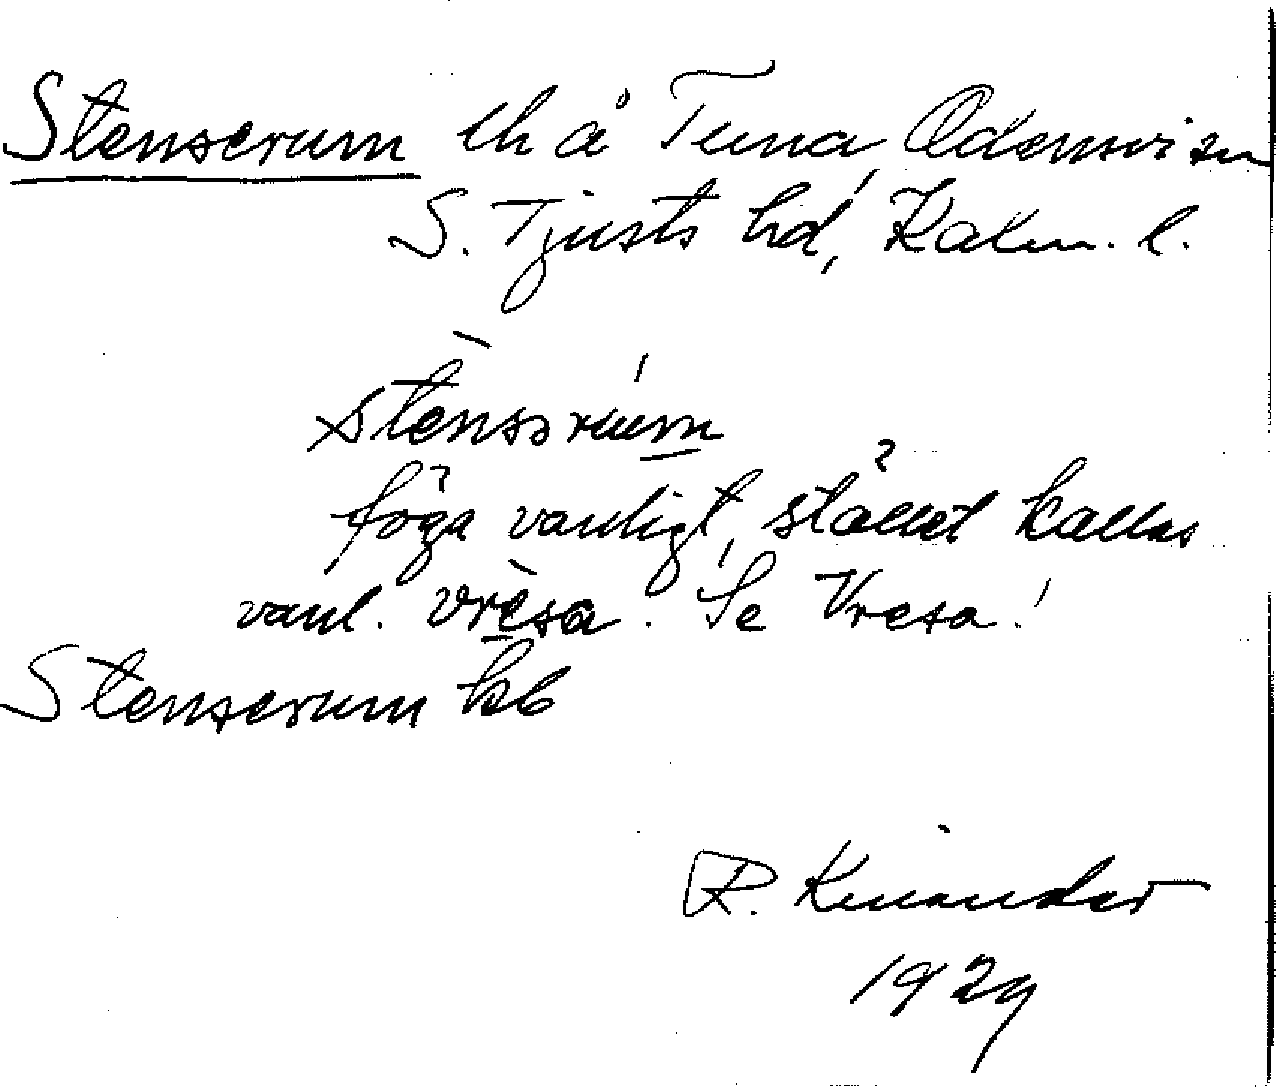 Stenserum lh å Tuna, Odensvi sn
S. Tjusts hd, Kalm. l.
stensərum
föga vanligt, stället kallas
vanl. vrèsa. Se Vresa!
Stenserum kb
R. Kinander
1929